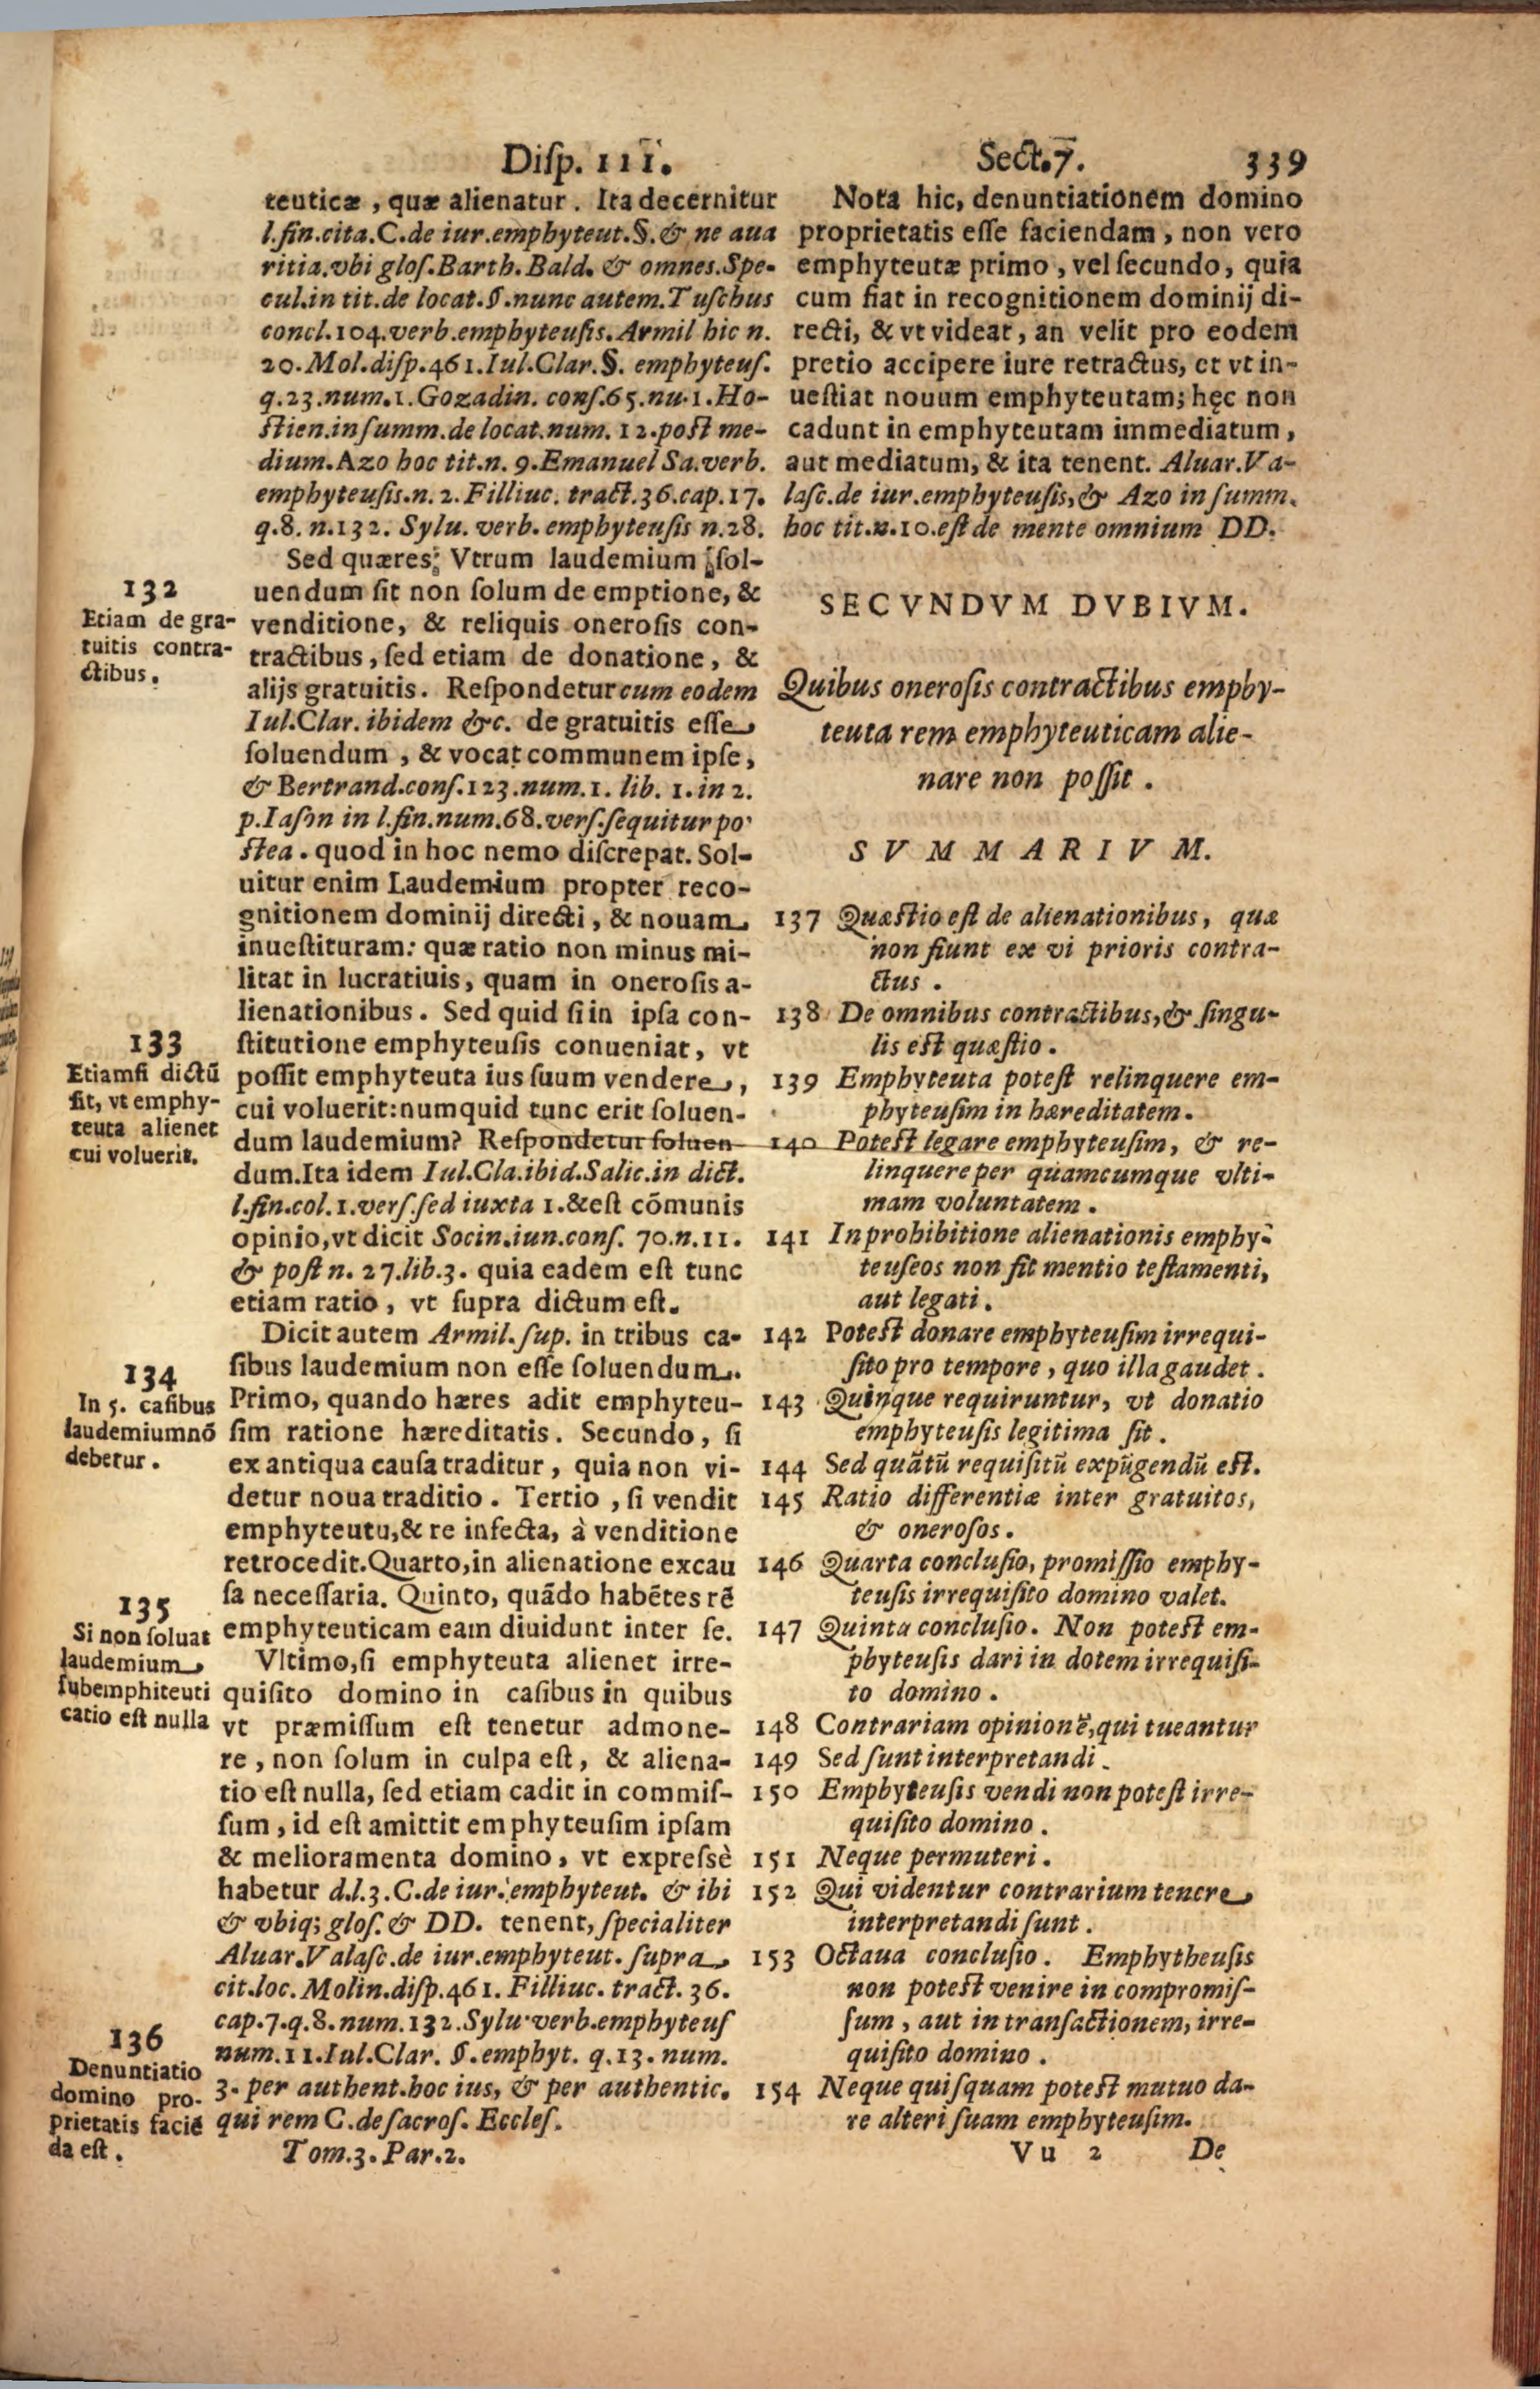 Disp. 111. Sect. 7. 339
teuticæ, quæ alienatur. Ita decernitur
l.fin.cita.C.de iur.emphyteut.§.& ne aua
ritia.vbi glos.Barth.Bald. & omnes.Spe-
cul.in tit.de locat.§.nunc autem.Tuschus
concl.104.verb.emphyteusis.Armil hic n.
20.Mol.disp.461.Iul.Clar.§. emphyteus.
q.23.num.1.Gozadin. cons.65.nu.1.Ho-
stien.in summ.de locat.num. 12.post me-
dium.Azo hoc tit.n. 9.Emanuel Sa.verb.
emphyteusis.n. 2.Filliuc. tract.36.cap.17.
q.8. n.132. Sylu. verb. emphyteusis n.28.
Sed quæres; Vtrum laudemium sol-
uendum sit non solum de emptione, &
venditione, & reliquis onerosis con-
tractibus, sed etiam de donatione, &
alijs gratuitis. Respondetur cum eodem
Iul.Clar. ibidem &c. de gratuitis esse
soluendum, & vocat communem ipse,
& Bertrand.cons.123.num.1. lib. 1. in 2.
p.Iason in l.fin.num.68.vers.sequitur po
stea. quod in hoc nemo discrepat. Sol-
uitur enim Laudemium propter reco-
gnitionem dominij directi, & nouam
inuestituram: quæ ratio non minus mi-
litat in lucratiuis, quam in onerosis a-
lienationibus. Sed quid si in ipsa con-
stitutione emphyteusis conueniat, vt
possit emphyteuta ius suum vendere,
cui voluerit: numquid tunc erit soluen-
dum laudemium? Respondetur soluen-
dum.Ita idem Iul.Cla.ibid.Salic.in dict.
l.fin.col.1.vers.sed iuxta 1.&est cōmunis
opinio, vt dicit Socin.iun.cons. 70.n.11.
& post n. 27.lib.3. quia eadem est tunc
etiam ratio, vt supra dictum est.
Dicit autem Armil. sup. in tribus ca-
sibus laudemium non esse soluendum.
Primo, quando hæres adit emphyteu-
sim ratione hæreditatis. Secundo, si
ex antiqua causa traditur, quia non vi-
detur noua traditio. Tertio, si vendit
emphyteutu,& re infecta, à venditione
retrocedit.Quarto, in alienatione excau
sa necessaria. Quinto, quãdo habētes rē
emphyteuticam eam diuidunt inter se.
Vltimo, si emphyteuta alienet irre-
quisito domino in casibus in quibus
vt præmissum est tenetur admone-
re, non solum in culpa est, & aliena-
tio est nulla, sed etiam cadit in commis-
sum, id est amittit emphyteusim ipsam
& melioramenta domino, vt expressè
habetur d.l.3.C.de iur. emphyteut. & ibi
& vbiq; glos. & DD. tenent, specialiter
Aluar.Valasc.de iur.emphyteut. supra
cit.loc. Molin.disp.461. Filliuc. tract. 36.
cap.7.q.8.num.132.Sylu.verb.emphyteus
num.11.Iul.Clar. §.emphyt. q.13. num.
3. per authent.hoc ius, & per authentic.
qui rem C.de sacros. Eccles.
Tom.3. Par.2.
132
Etiam de gra-
tuitis contra-
ctibus.
133
Etiamsi dictū
sit, vt emphy-
teuta alienet
cui voluerit.
134
In 5. casibus
laudemiumnō
debetur.
135
Si non soluat
laudemium
subemphiteuti
catio est nulla
136
Denuntiatio
domino pro-
prietatis faciē
da est.
Nota hic, denuntiationem domino
proprietatis esse faciendam, non vero
emphyteutæ primo, vel secundo, quia
cum fiat in recognitionem dominij di-
recti, & vt videat, an velit pro eodem
pretio accipere iure retractus, et vt in-
uestiat nouum emphyteutam; hęc non
cadunt in emphyteutam immediatum,
aut mediatum, & ita tenent. Aluar.Va-
lasc.de iur.emphyteusis,& Azo in summ.
hoc tit.n.10.est de mente omnium DD.
SECVNDVM DVBIVM.
Quibus onerosis contractibus emphy-
teuta rem emphyteuticam alie-
nare non possit.
SVMMARIVM.
137 Quæstio est de alienationibus, quæ
non fiunt ex vi prioris contra-
ctus.
138 De omnibus contractibus,& singu-
lis est quæstio.
139 Emphyteuta potest relinquere em-
phyteusim in hæreditatem.
140 Potest legare emphyteusim, & re-
linquere per quamcumque vlti-
mam voluntatem.
141 In prohibitione alienationis emphy-
teuseos non fit mentio testamenti,
aut legati.
142 Potest donare emphyteusim irrequi-
sito pro tempore, quo illa gaudet.
143 Quinque requiruntur, vt donatio
emphyteusis legitima sit.
144 Sed quãtū requisitū expūgendū est.
145 Ratio differentiæ inter gratuitos,
& onerosos.
146 Quarta conclusio, promissio emphy-
teusis irrequisito domino valet.
147 Quinta conclusio. Non potest em-
phyteusis dari in dotem irrequisi-
to domino.
148 Contrariam opinionē,qui tueantur
149 Sed sunt interpretandi.
150 Emphyteusis vendi non potest irre-
quisito domino.
151 Neque permuteri.
152 Qui videntur contrarium tenere
interpretandi sunt.
153 Octaua conclusio. Emphytheusis
non potest venire in compromis-
sum, aut in transactionem, irre-
quisito domino.
154 Neque quisquam potest mutuo da-
re alteri suam emphyteusim.
Vu 2 De